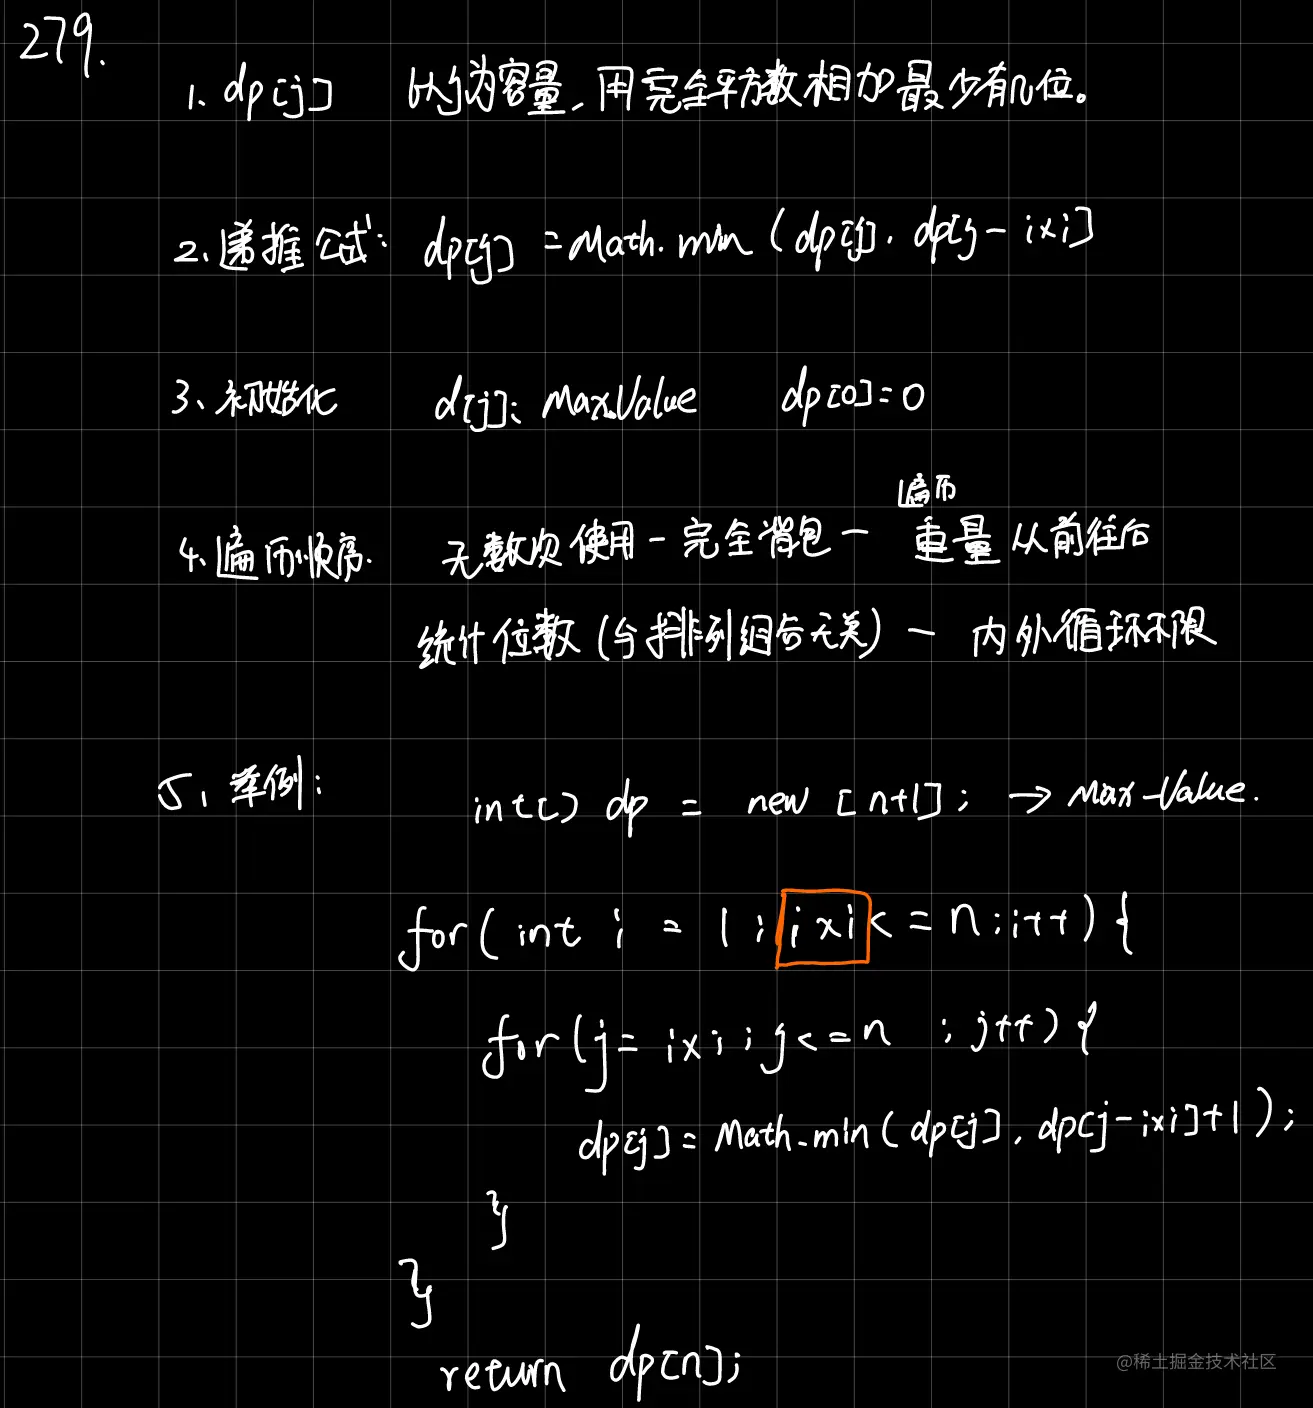 279.
1、dp[j] 以j为容量,用完全平方数相加最少有几位。
2、递推公式: dp[j] = Math.min(dp[j], dp[j-i×i]
3、初始化 d[j]: Max.Value dp[0]=0
遍历
4、遍历顺序. 无数次使用-完全背包- 重量从前往后
统计位数(与排列组合无关)- 内外循环不限
5、举例: int[] dp = new [n+1]; → Max-Value.
for(int i = 1; i×i<=n;i++){
for(j=i×i;j<=n ;j++){
dp[j]=Math.min(dp[j],dp[j-i×i]+1);
}
}
return dp[n];
@稀土掘金技术社区